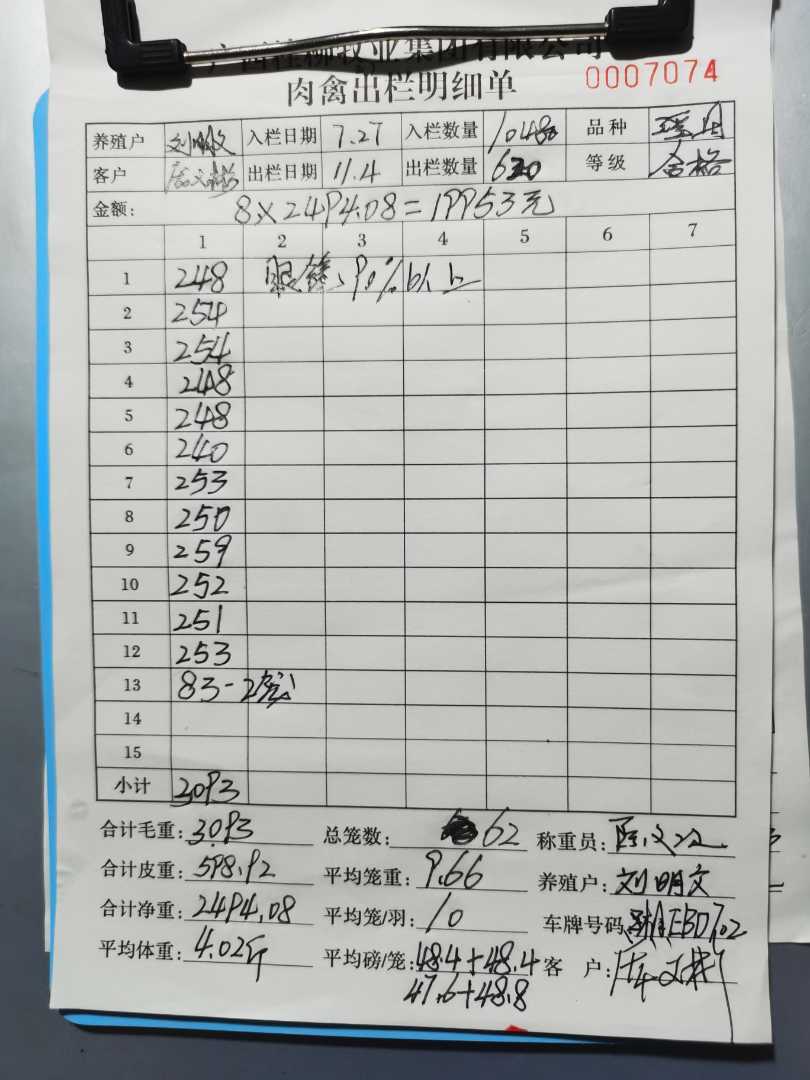 牧业集团有限公司
肉禽出栏明细单 0007074
养殖户 刘明文 入栏日期 7.27 入栏数量 10480 品种
客户 出栏日期 11.4 出栏数量 620 等级 合格
金额: 8×2494.08=19953元
1 2 3 4 5 6 7
1 248 眼 90%以上
2 254
3 254
4 248
5 248
6 240
7 253
8 250
9 259
10 252
11 251
12 253
13 83-2
14
15
小计 3093
合计毛重: 3093 总笼数: 62 称重员:
合计皮重: 598.92 平均笼重: 9.66 养殖户: 刘明文
合计净重: 2494.08 平均笼/羽: 10 车牌号码
平均体重: 4.02斤 平均磅/笼: 48.4+48.4 客 户:
47.6+48.8